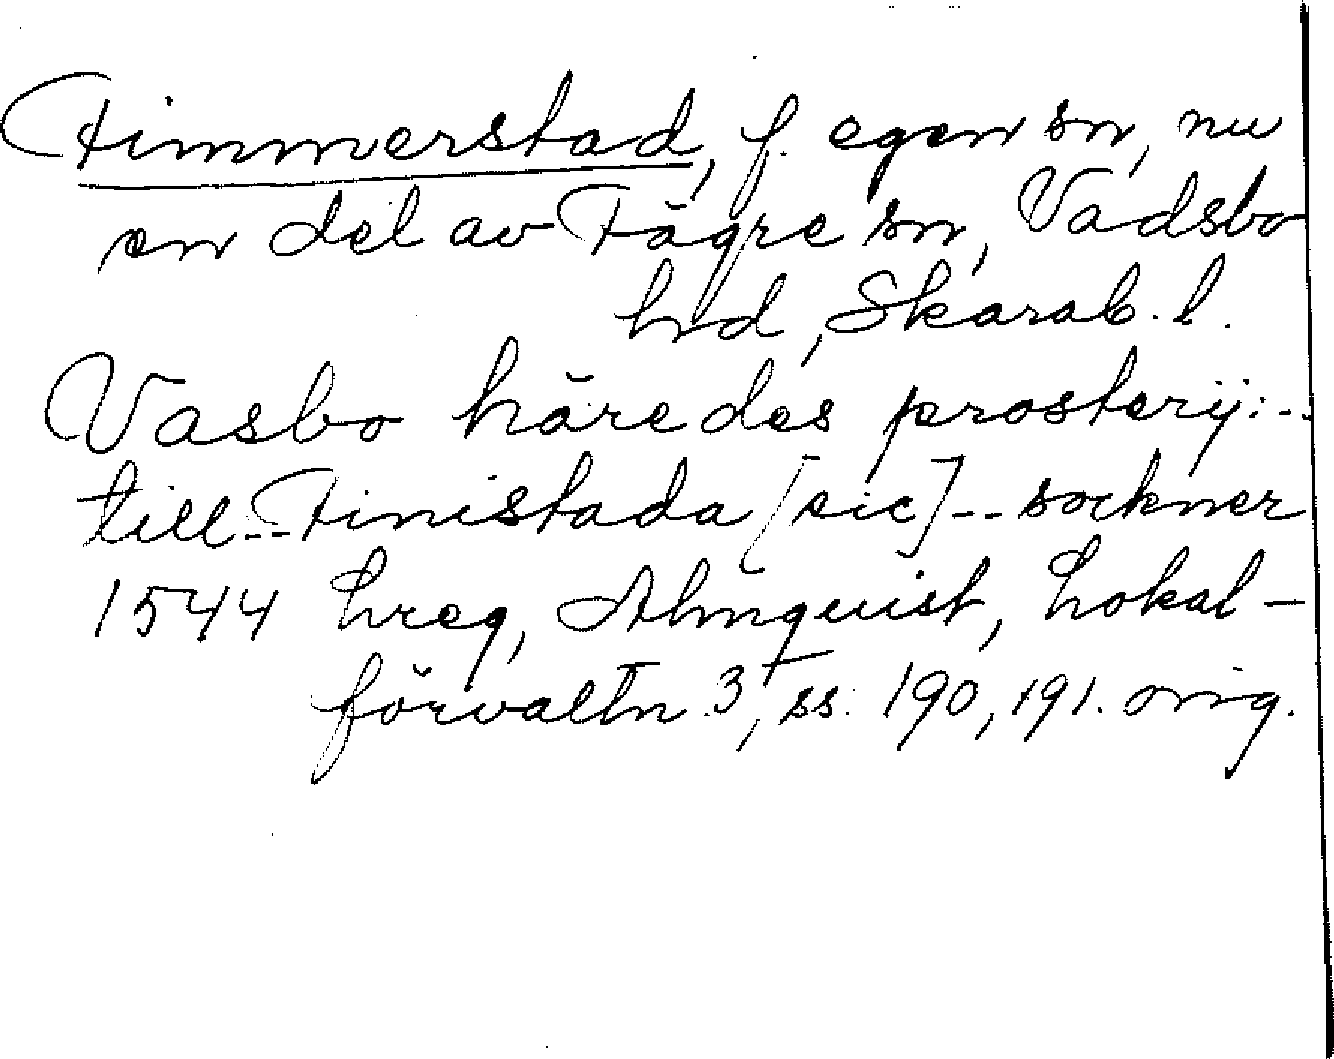 Fimmerstad, f. egen sn, nu
en del av Fägre sn, Vadsbo
hd, Skarab. l.
Vasbo häredes prosterij: --
till -- Finistada [sic] -- sockner
1544 hreg, Almquist, Lokal-
förvaltn 3, ss. 190, 191. orig.